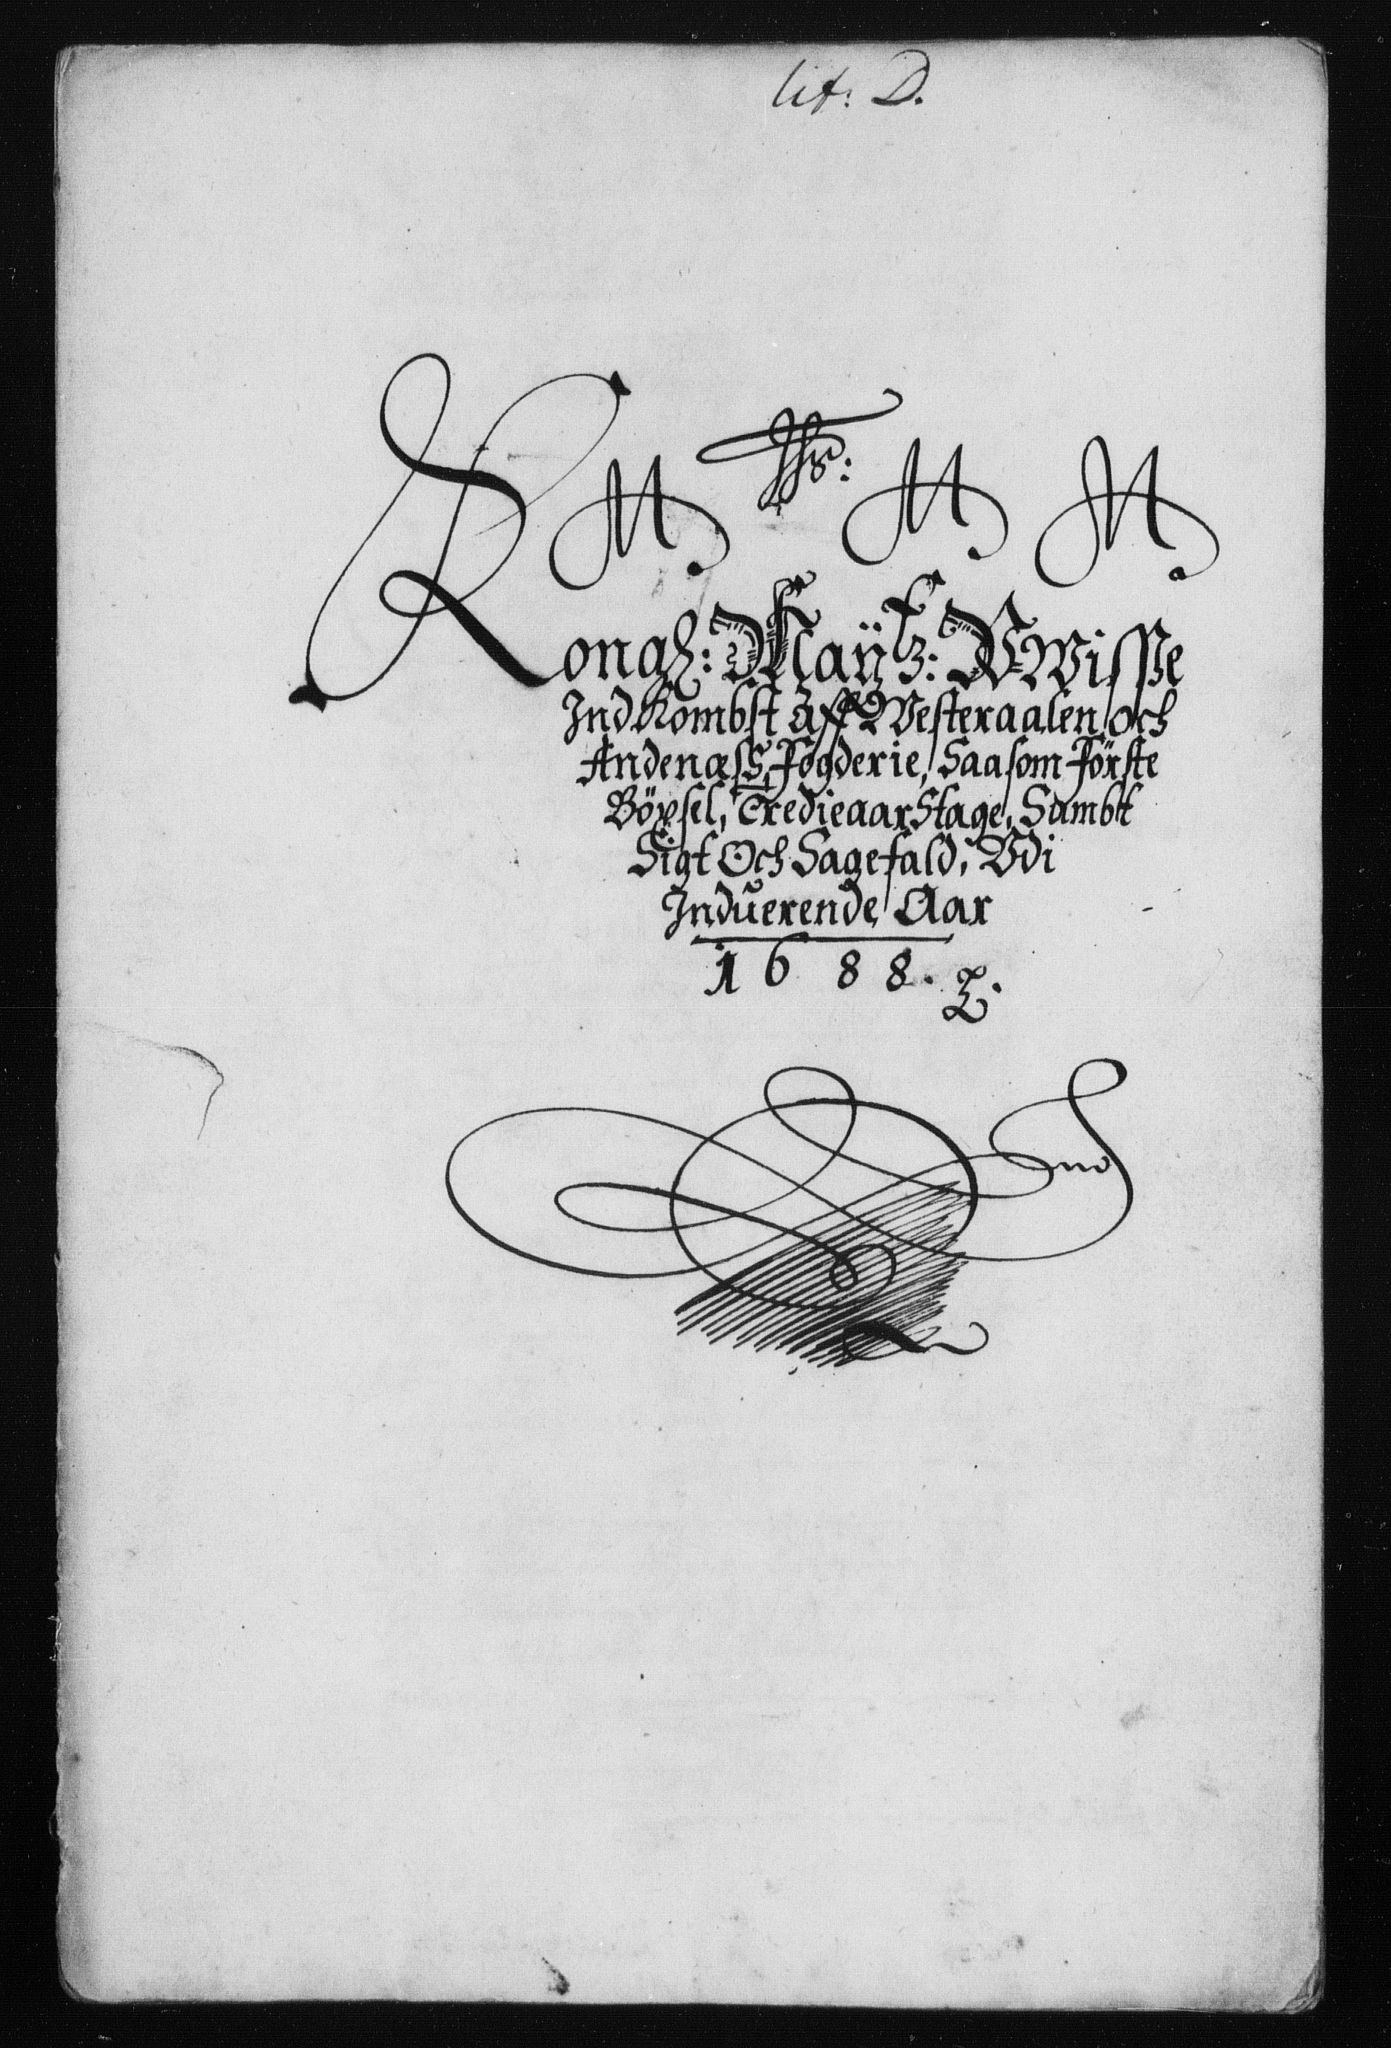 lit: D.
Kongl: Maÿtz: Vwisse
Ind Kombst aff Westeraalen och
Andenæss Fogderie, Saasom Förste
Böxsel, TredieaarStage, Sambt
Sigt Och Sagefald, Vdi
Induerende Aar
1688.